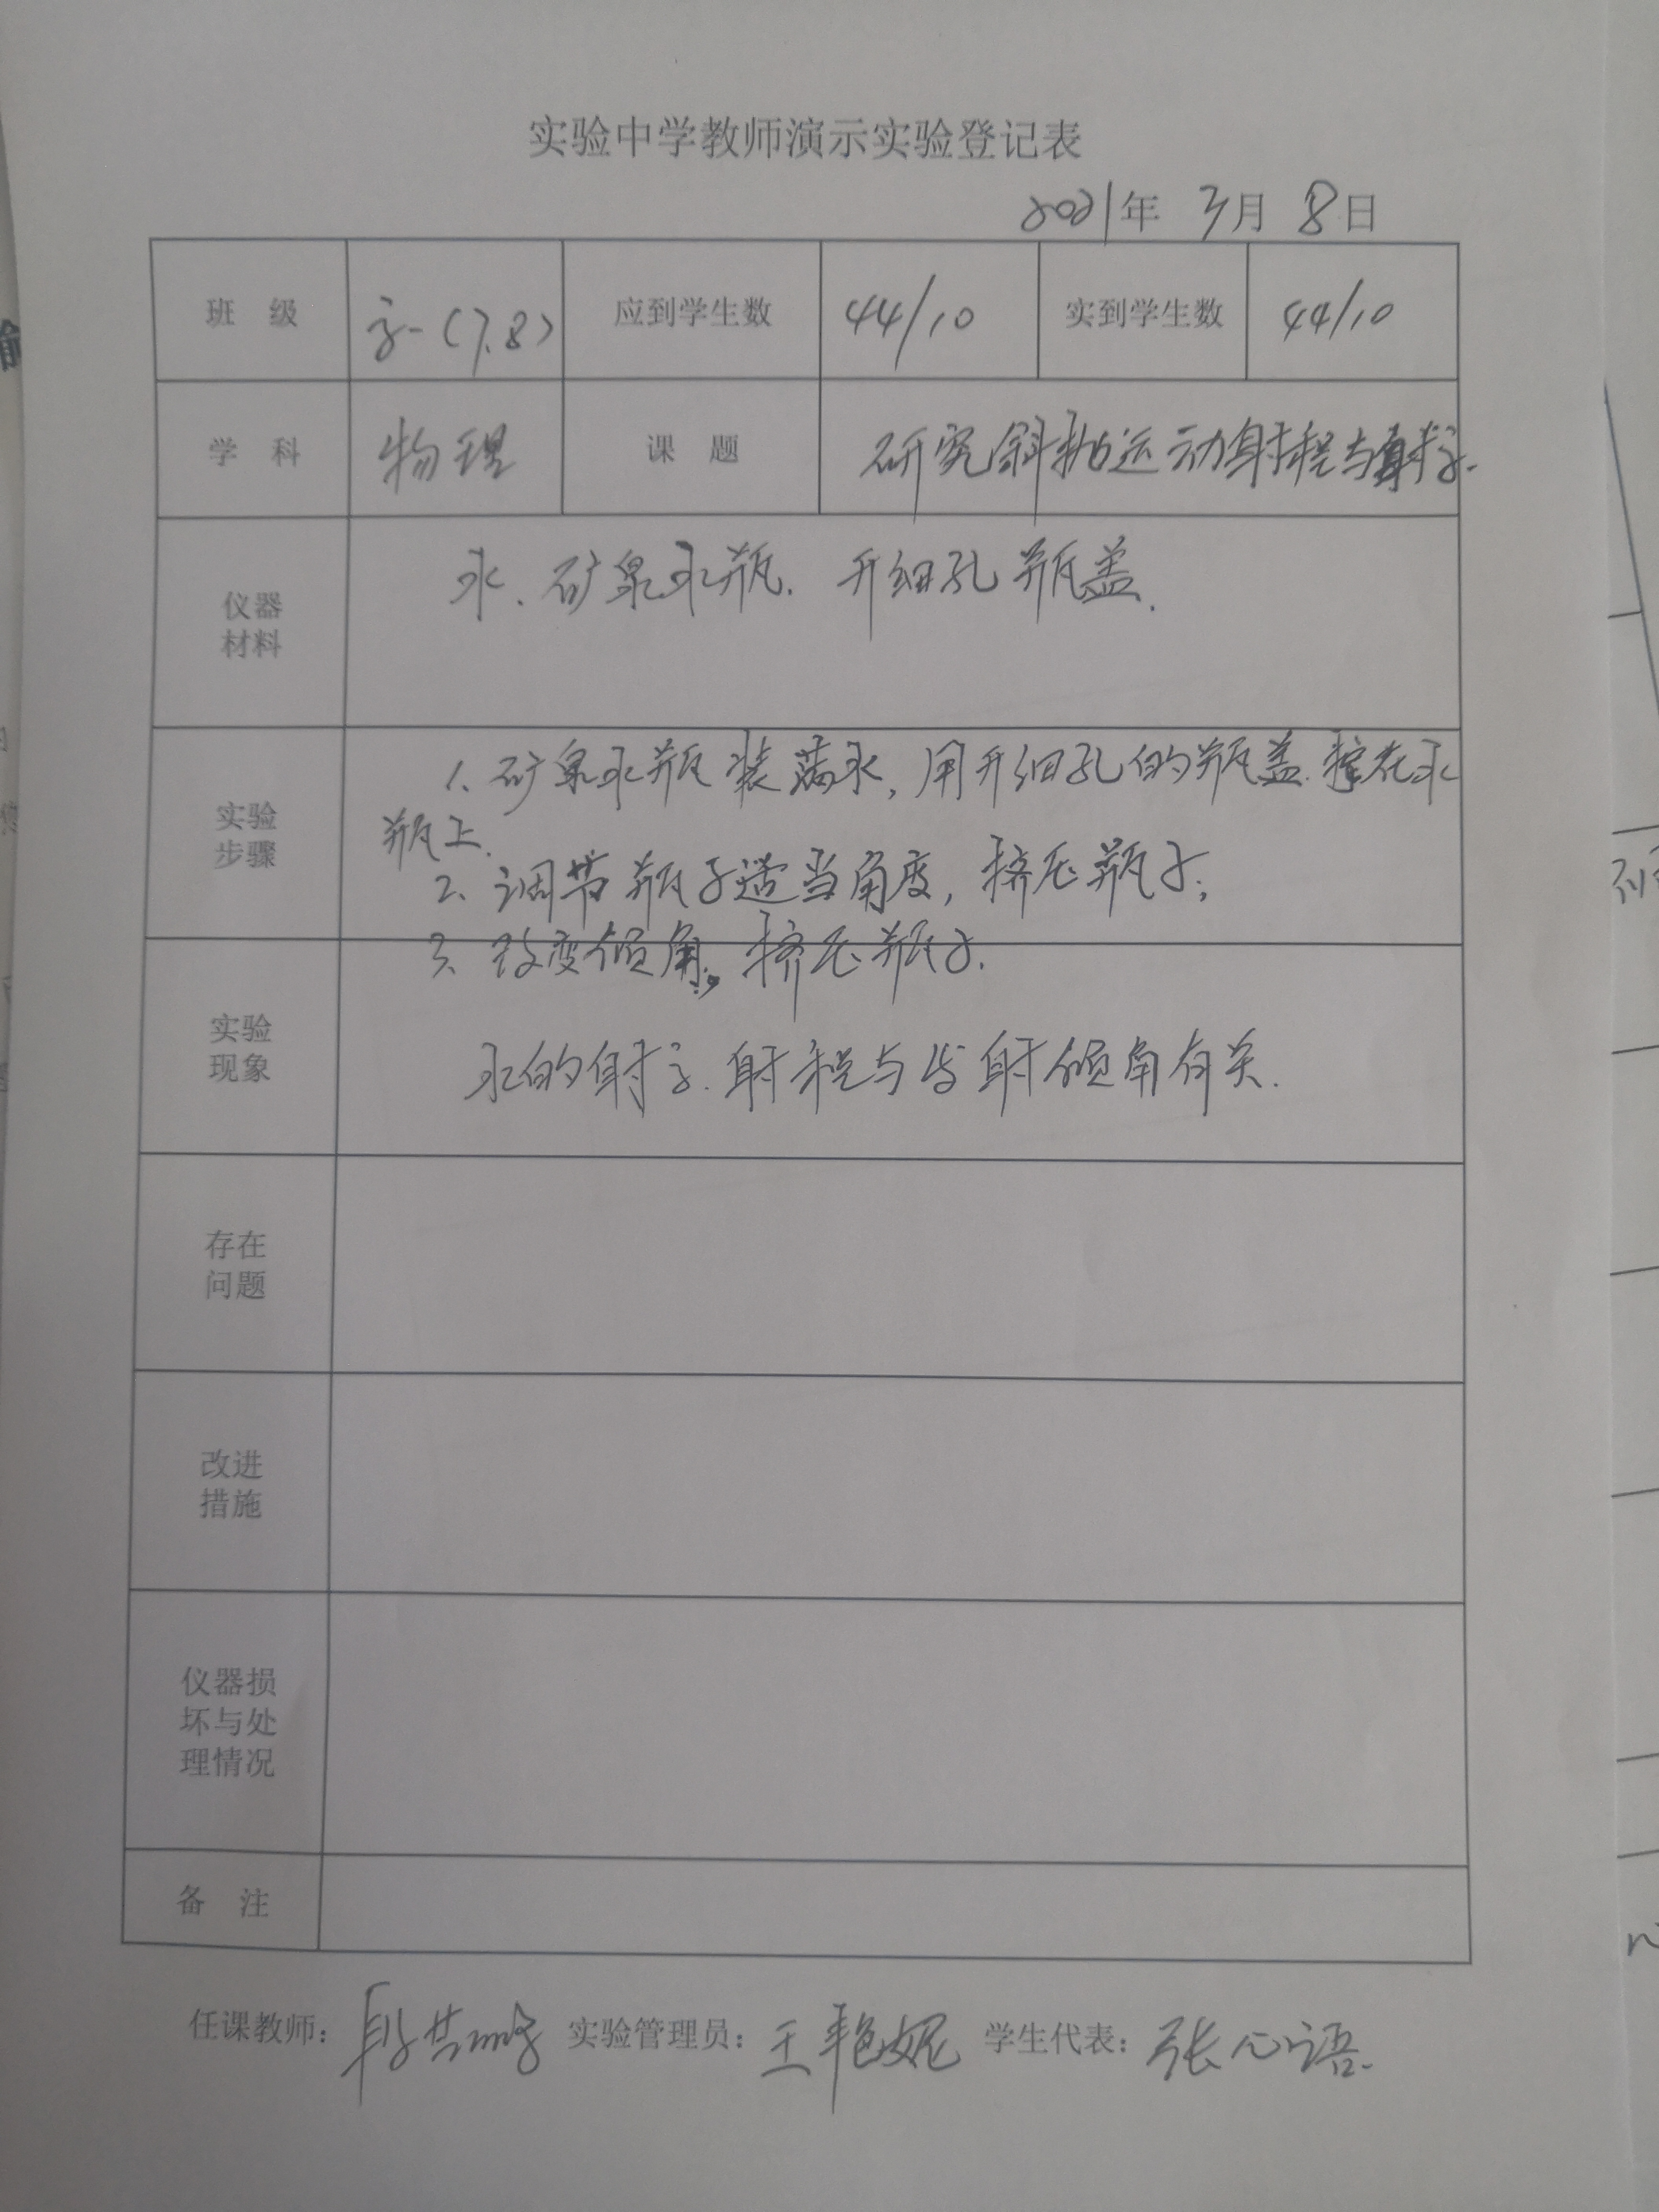 实验中学教师演示实验登记表
2021年 3月 8日
班 级 高一(7.8) 应到学生数 44/10 实到学生数 44/10
学 科 物理 课 题 研究斜抛运动射程与射高.
仪器
材料
水、矿泉水瓶. 开细孔瓶盖.
实验
步骤
1. 矿泉水瓶装满水, 用开细孔的瓶盖 在水
瓶上.
2. 调节瓶子适当角度, 挤压瓶子;
3. 改变倾角, 挤压瓶子.
实验
现象
水的射高.射程与发射倾角有关.
存在
问题
改进
措施
仪器损
坏与处
理情况
备 注
任课教师: 段 实验管理员: 王艳妮 学生代表: 张心语.